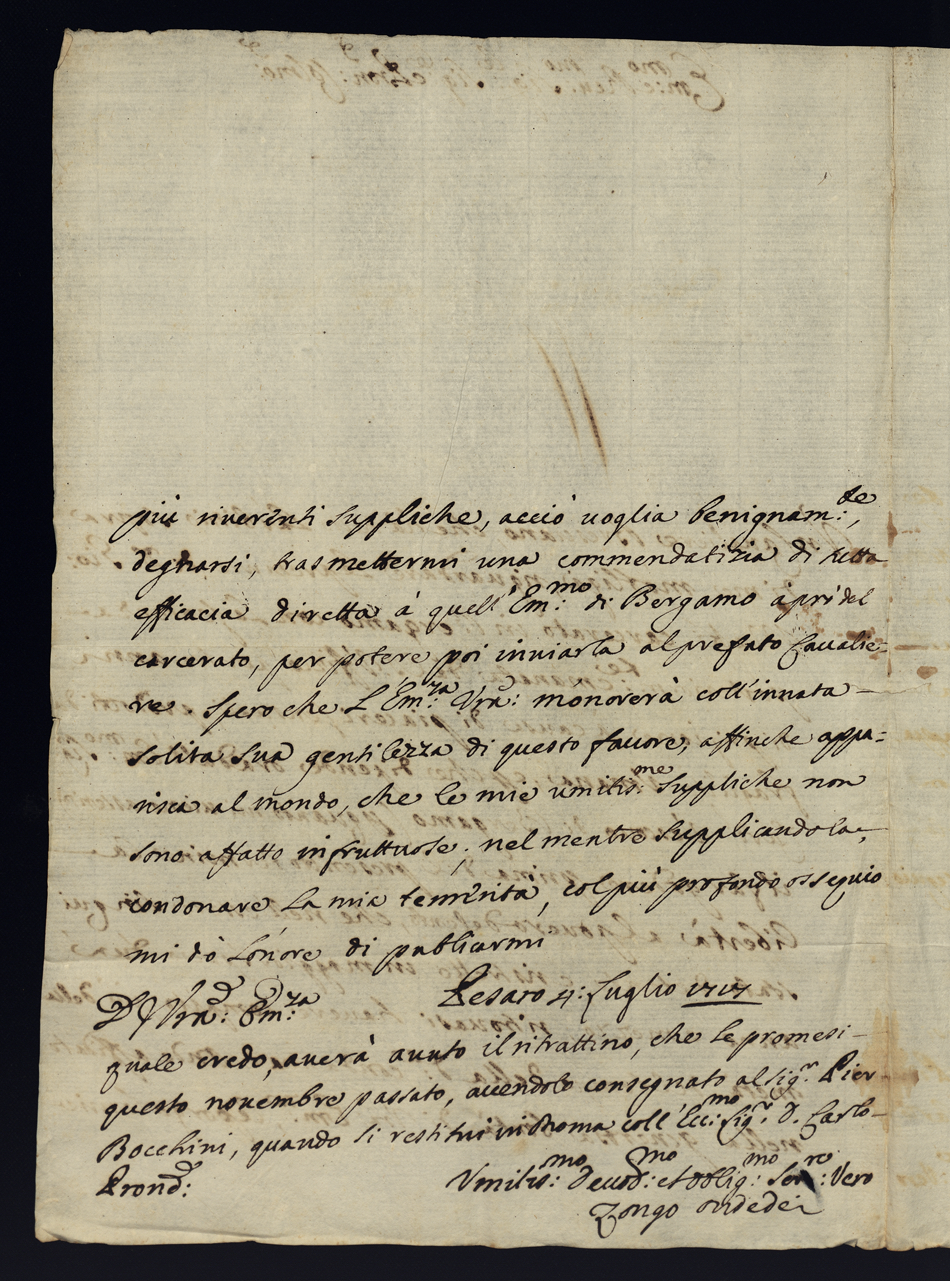 più riuerenti suppliche, acciò uoglia benignam:te,
degnarsi, trasmettermi una commendatizia di tutta
efficacia diretta à quell'Em:mo di Bergamo à prò del
carcerato, per potere poi inuiarla al prefato Caualie-
re. Spero che L'Em:za Vra: m'onorerà coll'innata
solita sua gentilezza di questo fauore, affinche appa=
risca al mondo, che le mie umilis:me suppliche non
sono affatto infruttuose; nel mentre supplicandola
condonare la mia temerità, col più profondo ossequio
mi dò L'onore di publicarmi
D. Vra: Em:za
Pesaro 4: Luglio 1717
quale credo, auerà auuto il ritrattino, che le promesi
questo nouembre passato, auendolo consegnato al Sig:r Pier
Bocchini, quando si restituì in Roma coll'Ecc:mo Sig:r D. Carlo
Prond:
Vmilis:mo Deuod:mo et Obblig:mo Ser:re Vero
Zongo Ondedei